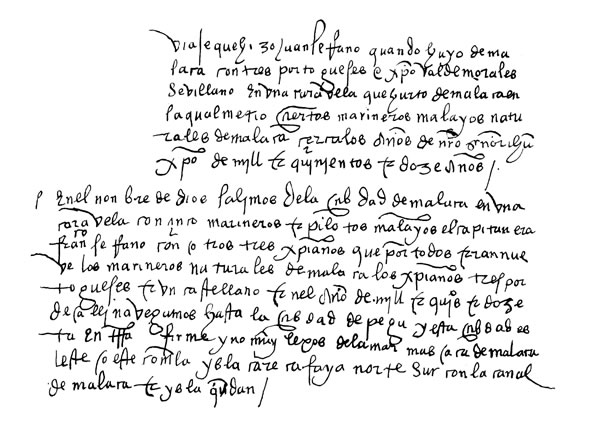 viaje que hizo Juan sefano quando huyo de ma
laca con tres portogueses e xpo val de morales
Sevillano en una caravela que hurto de malaca en
la qual metio çiertos marineros malayos natu
rales de malaca cerca los años de nro señor ihu
xpo de myll e quinientos e doze años /.
En el nonbre de dios Salimos de la çibdad de malaca en una
caravela con cinco marineros e pilotos malayos el capitan era
fran se fano con otros tres xpianos que por todos eran nue
ve los marineros naturales de malaca los xpianos tres por
togueses e un castellano e en el año de mill e qujos e doze
de alli navegamos hasta la çibdad de pegu y esta çibdad es
ta en trra firme y no muy lexos de la mar mas aca de malaca
leste oeste con la ysla norte Sur con la canal
de malaca e ysla /